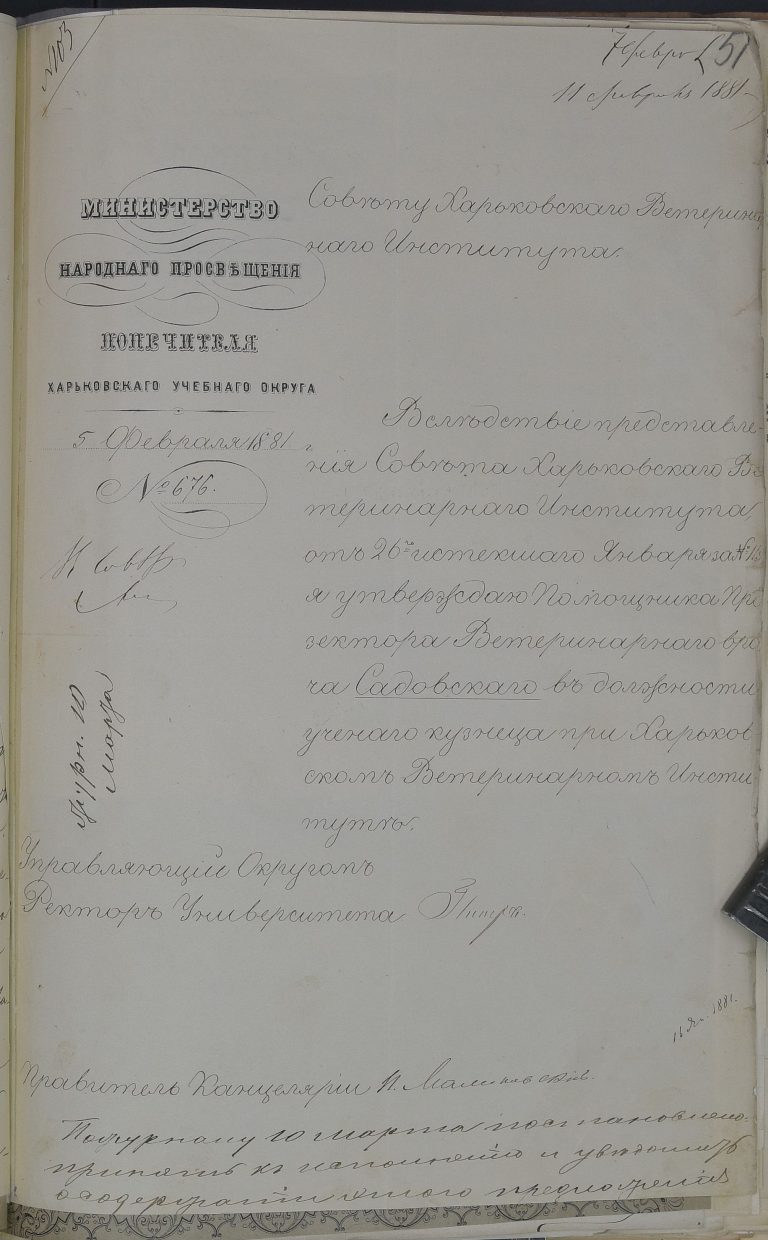 №103
7 Февр (51
11 Февраля 1881
МИНИСТЕРСТВО
НАРОДНАГО ПРОСВѢЩЕНІЯ
ПОПЕЧИТЕЛЯ
ХАРЬКОВСКАГО УЧЕБНАГО ОКРУГА
5 Февраля 1881
№ 676.
Журн. 10
Марта
Совѣту Харьковскаго Ветеринар
наго Института.
Вслѣдствіе представле-
нія Совѣта Харьковскаго Ве
теринарнаго Института,
отъ 26го истекшаго Января за №
я утверждаю Помощника Про
зектора Ветеринарнаго вра
ча Садовскаго въ должности
ученаго кузнеца при Харьков
скомъ Ветеринарномъ Инсти
тутѣ.
Управляющій Округомъ
Ректоръ Университета
1881.
Правитель Канцеляріи
По журналу 10 Марта постановлено:
принять къ исполненію и увѣдомить
о содержаніи этого предложенія